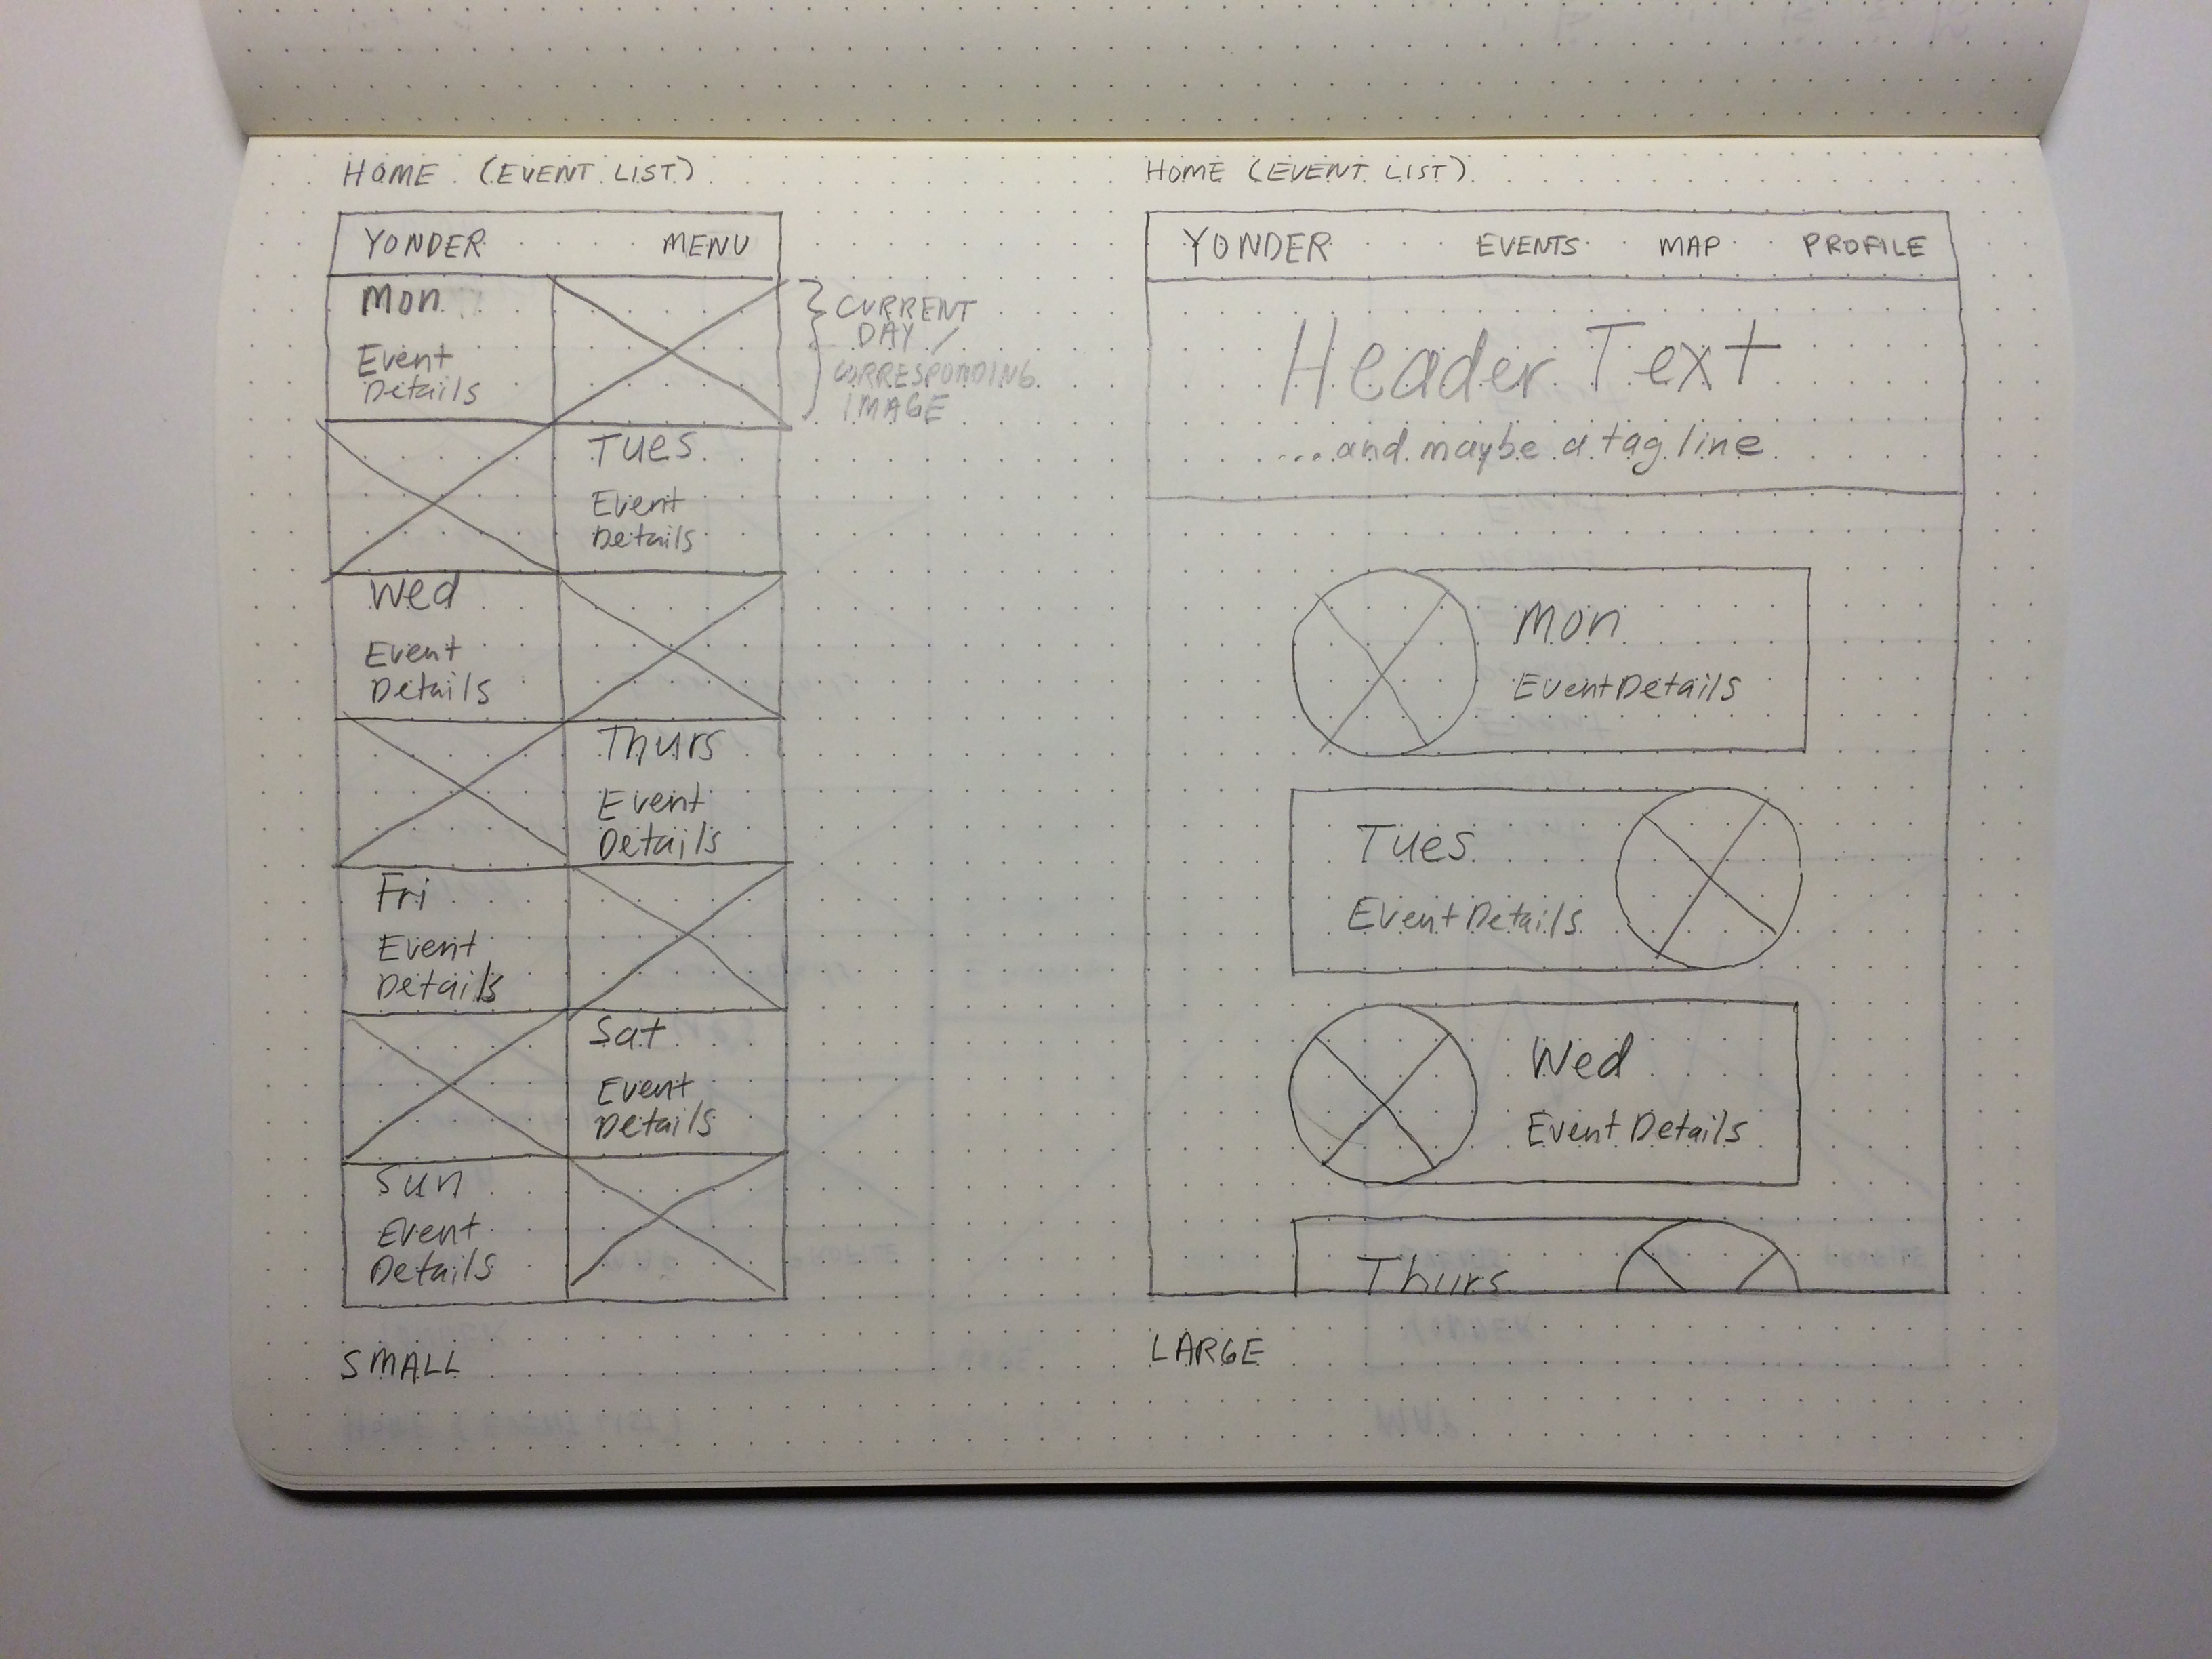 HOME (EVENT LIST)
YONDER MENU
Mon
Event
Details
CURRENT
DAY /
CORRESPONDING
IMAGE
Tues
Event
Details
Wed
Event
Details
Thurs
Event
Details
Fri
Event
Details
Sat
Event
Details
Sun
Event
Details
SMALL
HOME (EVENT LIST)
YONDER EVENTS MAP PROFILE
Header Text
...and maybe a tag line
Mon
Event Details
Tues
Event Details
Wed
Event Details
Thurs
LARGE